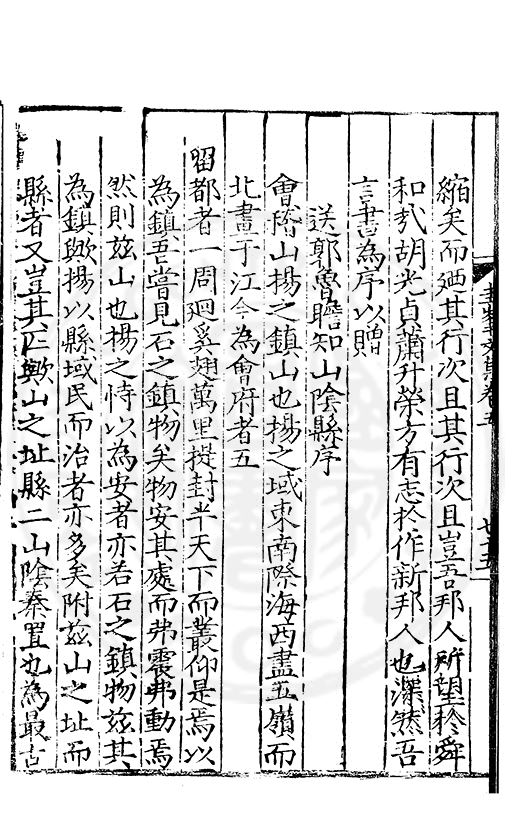 縮矣而廼其行次且其行次且豈吾邦人所望於舜
和㢤胡光貞蕭升榮方有志於作新邦人也深然吾
言書為序以贈
送郭魯瞻知山陰縣序
會稽山揚之鎮山也揚之域東南際海西盡五嶺而
北畫于江今為會府者五
留都者一周廻奚翅萬里提封半天下而叢仰是焉以
為鎮吾嘗見石之鎮物矣物安其處而弗震弗動焉
然則兹山也揚之恃以為安者亦若石之鎮物兹其
為鎮歟揚以縣域民而治者亦多矣附兹山之址而
縣者又豈其匹歟山之址縣二山陰秦置也為最古
文集卷五